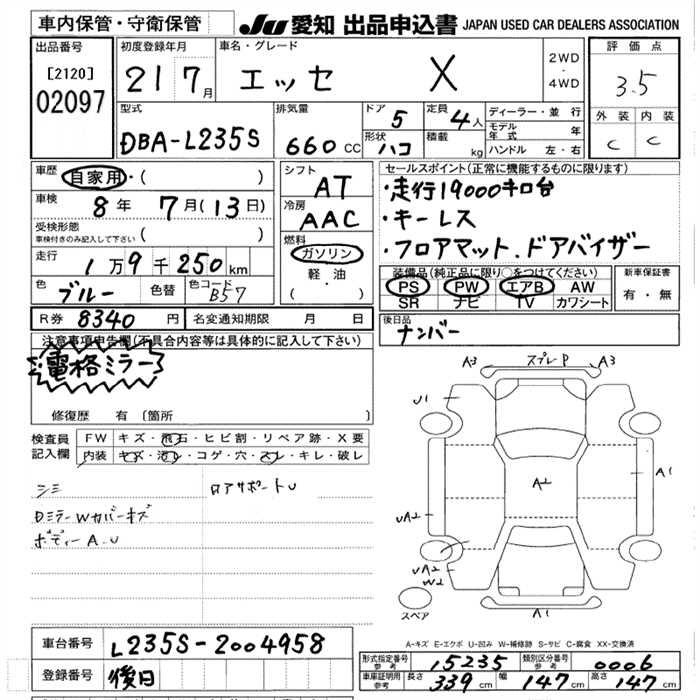 車内保管・守衛保管
JU 愛知 出品申込書 JAPAN USED CAR DEALERS ASSOCIATION
出品番号
[2120]
02097
初度登録年月
21 7月
車名・グレード
エッセ X
2WD
・
4WD
評価点
3.5
外装 内装
C C
型式
DBA-L235S
排気量
660 CC
ドア 5
形状 ハコ
定員 4人
積載 kg
ディーラー・並行
モデル年式 年
ハンドル 左・右
車歴
自家用・( )
車検
8年 7月(13日)
受検形態
車検付きのみ記入して下さい ( )
走行
1万9千250km
色 ブルー
色替
色コード B57
シフト
AT
冷房
AAC
燃料
ガソリン
軽・油
( )
セールスポイント(正常に機能するものに限ります)
・走行19000キロ台
・キーレス
・フロアマット.ドアバイザー
装備品(純正品に限り○をつけてください)
PS PW エアB AW
SR ナビ TV カワシート
新車保証書
有・無
R券 8340円
名変通知期限 月 日
後日品
ナンバー
注意事項申告欄(不具合内容等は具体的に記入して下さい)
電格ミラー
修復歴 有〔箇所 〕
検査員
記入欄
FW キズ・飛石・ヒビ割・リペア跡・X要
内装 キズ・汚レ・コゲ・穴・スレ・キレ・破レ
シミ
ロアサポートU
DミラーWカバーキズ
ボディーA.U
A3 スプレP A3
U1
A1
A2
UA2
UA2
W2
A1
スペア
A-キズ E-エクボ U-凹み W-補修跡 S-サビ C-腐食 XX-交換済
車台番号 L235S-2004958
登録番号 後日
形式指定番号 参考 15235
類別区分番号 参考 0006
車庫証明用 参考 長さ 339cm 幅 147cm 高さ 147cm